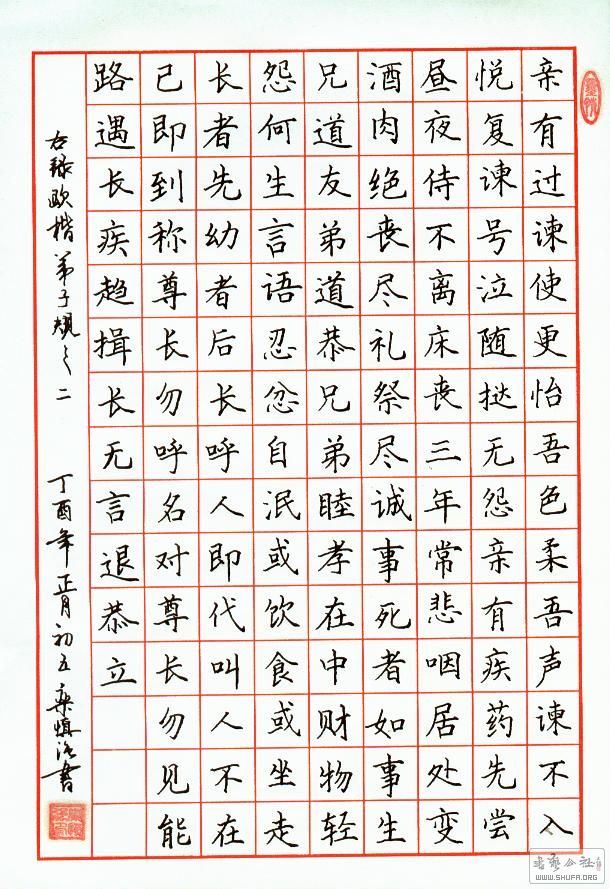 亲有过谏使更怡吾色柔吾声谏不入
悦复谏号泣随挞无怨亲有疾药先尝
昼夜侍不离床丧三年常悲咽居处变
酒肉绝丧尽礼祭尽诚事死者如事生
兄道友弟道恭兄弟睦孝在中财物轻
怨何生言语忍忿自泯或饮食或坐走
长者先幼者后长呼人即代叫人不在
已即到称尊长勿呼名对尊长勿见能
路遇长疾趋揖长无言退恭立
右录欧楷弟子规之二 丁酉年正月初五桑慎书
书艺公社
WWW.SHUFA.ORG